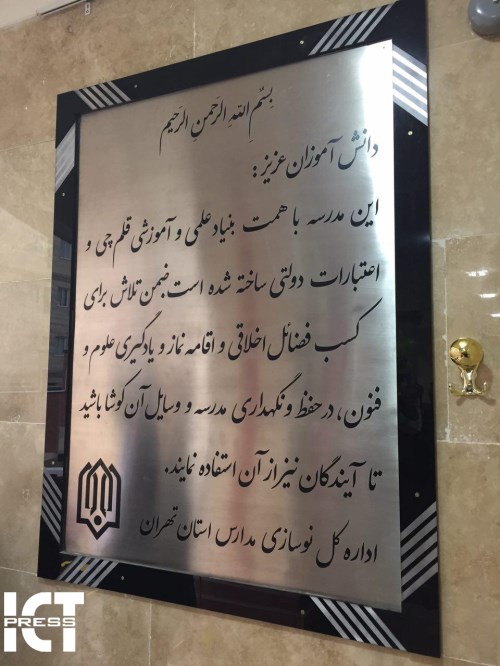 بِسْمِ اللهِ الرَّحمنِ الرَّحیم
دانش آموزان عزیز :
این مدرسه با همت بنیاد علمی و آموزشی قلم چی و
اعتبارات دولتی ساخته شده است ضمن تلاش برای
کسب فضائل اخلاقی و اقامه نماز و یادگیری علوم و
فنون، در حفظ و نگهداری مدرسه و وسایل آن کوشا باشید
تا آیندگان نیز از آن استفاده نمایند.
اداره کل نوسازی مدارس استان تهران
ICT
PRESS